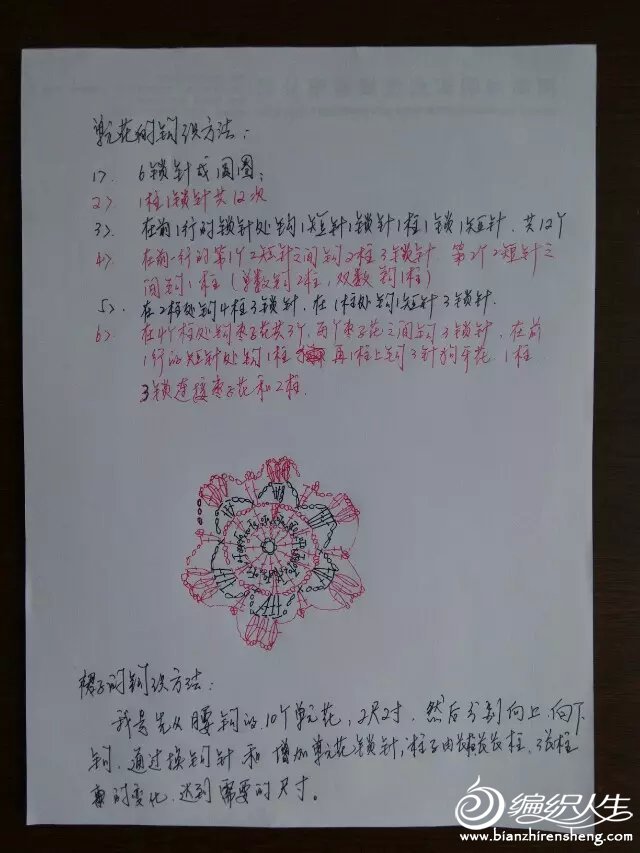 单元花的钩织方法：
1）. 6锁针成圆圈；
2）. 1柱1锁针共12次
3）. 在前1行的锁针处钩1短针1锁针1柱1锁1短针，共12个
4）. 在前一行的第1个2短针之间钩2柱3锁针，第2个2短针之
间钩1柱（单数钩2柱，双数钩1柱）
5）. 在2柱处钩4柱3锁针，在1柱处钩1短针3锁针.
6）. 在4个柱处钩枣子花共3个，两个枣子花之间钩3锁针，在前
1行的短针处钩1柱 再1柱上钩3针狗牙花，1柱
3锁连接枣子花和2柱.
裙子的钩织方法：
我是先从腰钩的，10个单元花，2尺2寸，然后分别向上、向下
钩，通过换钩针和增加单元花锁针，柱子由长长柱，3长柱
的变化，达到需要的尺寸。
编织人生
www.bianzhirensheng.com